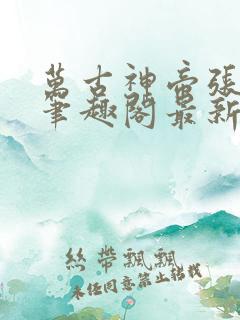 萬古神帝張
筆趣閣最新
絲帶飄飄
未經同意禁止轉載